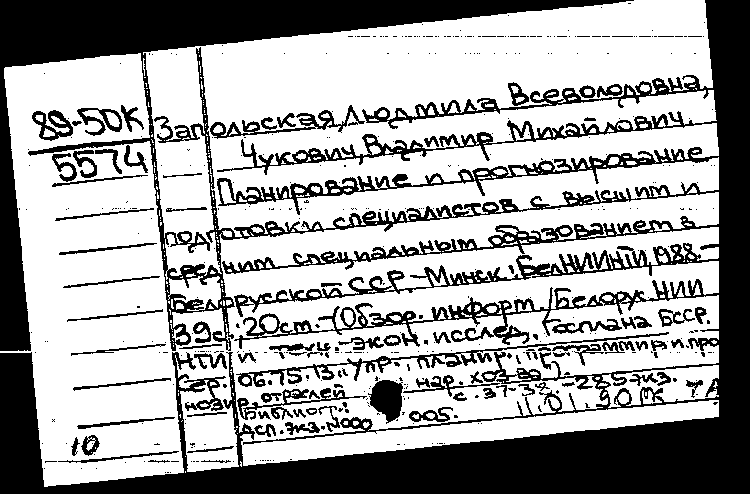 89-50К
5574
Запольская, Людмила Всеволодовна,
Чукович, Владимир Михайлович.
Планирование и прогнозирование
подготовки специалистов с высшим и
средним специальным образованием в
Белорусской ССР.-Минск: БелНИИНТИ, 1988.-
39с.; 20см.-(Обзор. информ./Белорус. НИИ
НТИ и техн.-экон. исслед., Госплана БССР.
Сер. 06.75.13 "Упр., планир., программир и про
нозир. отраслей нар. хоз-ва").
Библиогр.: с. 37-38.-285экз.
Дсп. Экз.N000 005.
11.01.90
10